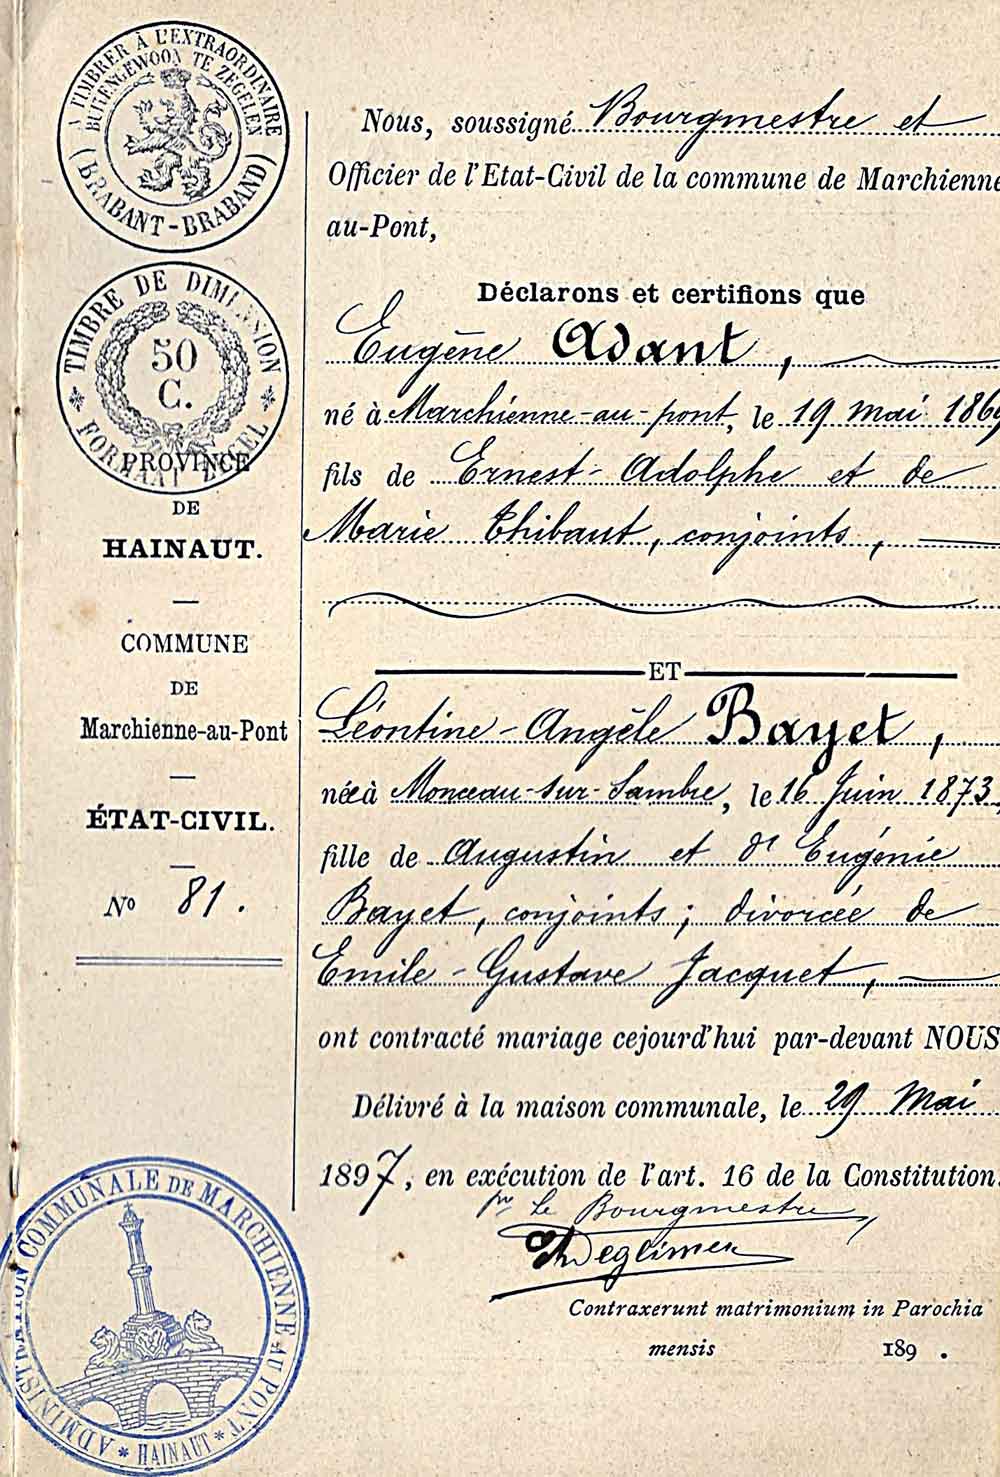 A TIMBRER À L'EXTRAORDINAIRE
BUITENGEWOON TE ZEGELEN
(BRABANT-BRABAND)
TIMBRE DE DIMENSION
50
C.
FORMAAT ZEGEL
PROVINCE
DE
HAINAUT.
COMMUNE
DE
Marchienne-au-Pont
ÉTAT-CIVIL.
No 81.
Nous, soussigné Bourgmestre et
Officier de l'Etat-Civil de la commune de Marchienne
au-Pont,
Déclarons et certifions que
Eugène Adant,
né à Marchienne-au-pont, le 19 mai 1869
fils de Ernest-Adolphe et de
Marie Thibaut, conjoints,
ET
Léontine-Angèle Bayet,
née à Monceau-sur-Sambre, le 16 Juin 1873,
fille de Augustin et d' Eugénie
Bayet, conjoints; divorcée de
Emile-Gustave Jacquet,
ont contracté mariage cejourd'hui par-devant NOUS
Délivré à la maison communale, le 29 Mai
1897, en exécution de l'art. 16 de la Constitution.
pr Le Bourgmestre,
Contraxerunt matrimonium in Parochia
mensis 189 .
ADMINISTRATION COMMUNALE DE MARCHIENNE-AU-PONT
* HAINAUT *